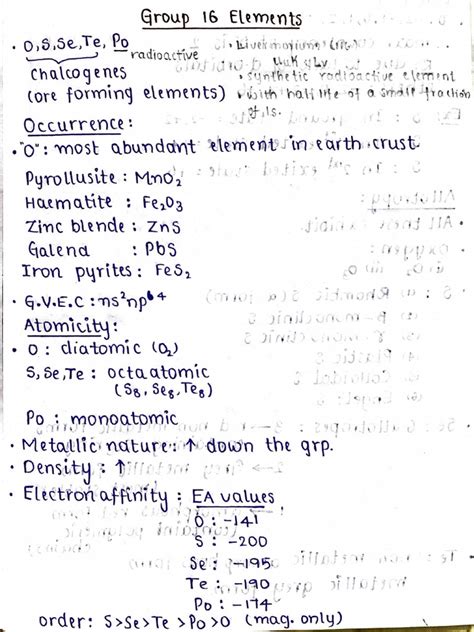 Group 16 Elements
• O, S, Se, Te, Po
radioactive
Chalcogenes
(ore forming elements)
• Livermorium
• synthetic radioactive element
• with half life of a small fraction
of 1s.
Occurrence:
• "O": most abundant element in earth crust
Pyrollusite : MnO₂
Haematite : Fe₂O₃
Zinc blende : ZnS
Galena : PbS
Iron pyrites : FeS₂
• G.V.E.C : ns²np⁴
Atomicity:
• O : diatomic (O₂)
S, Se, Te : octaatomic
(S₈, Se₈, Te₈)
Po : monoatomic
• Metallic nature: ↑ down the grp.
• Density : ↑
• Electron affinity : EA values
O : -141
S : -200
Se : -195
Te : -190
Po : -174
order: S>Se>Te>Po>O (mag. only)